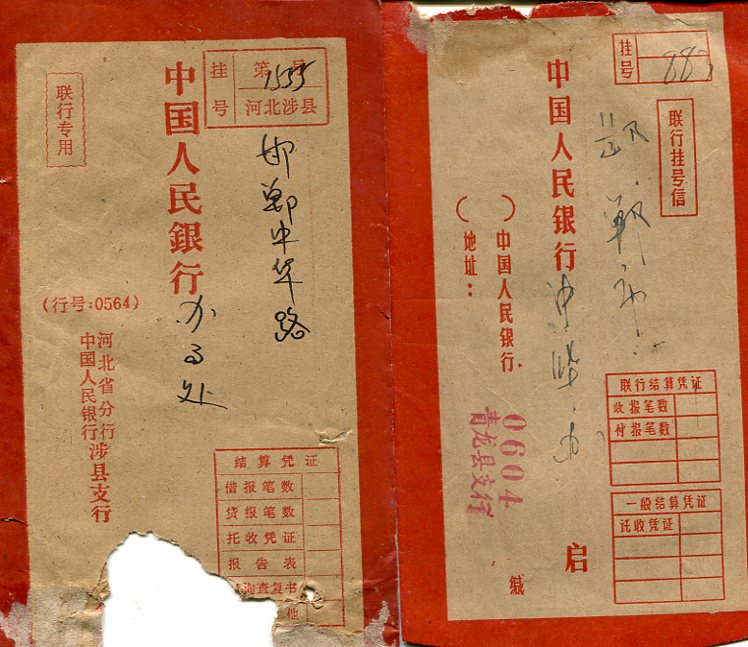 联行专用
挂号
第 号
1555
河北涉县
邯郸中华路
中国人民銀行
办事处
(行号:0564)
河北省分行
中国人民银行涉县支行
结算凭证
借报笔数
贷报笔数
托收凭证
报告表
询查复书
他
挂号
883
联行挂号信
邯郸市
中国人民银行
中华办
( )中国人民银行
地址:
0604
青龙县支行
联行结算凭证
收报笔数
付报笔数
一般结算凭证
托收凭证
启
缄